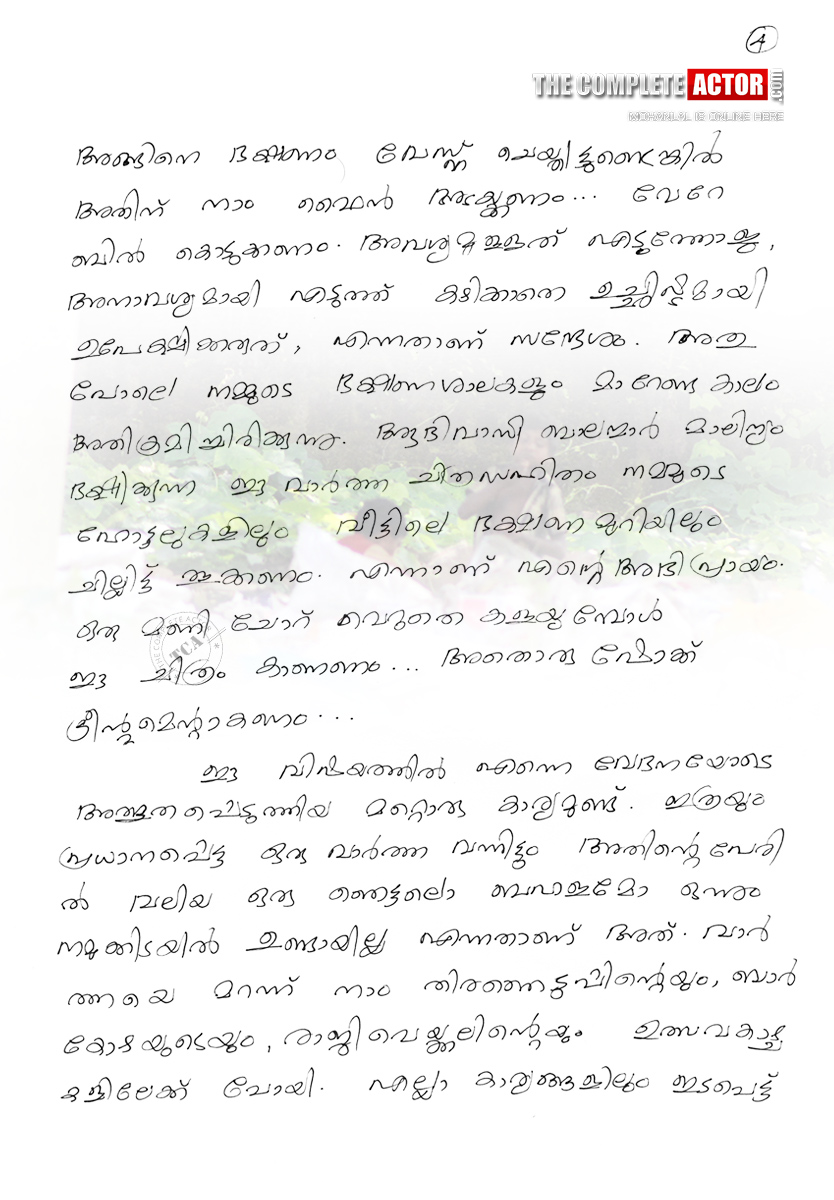 4
THE COMPLETE ACTOR .com
MOHANLAL IS ONLINE HERE
അങ്ങിനെ ഭക്ഷണം വേസ്റ്റ് ചെയ്തിട്ടുണ്ടെങ്കിൽ
അതിന് നാം ഫൈൻ അടയ്ക്കണം... വേറേ
ബിൽ കൊടുക്കണം. അവശ്യമുള്ളത് എടുത്തോളൂ,
അനാവശ്യമായി എടുത്ത് കഴിക്കാതെ ഉച്ഛിഷ്ടമായി
ഉപേക്ഷിക്കരുത്, എന്നതാണ് സന്ദേശം. അതു
പോലെ നമ്മുടെ ഭക്ഷണശാലകളും മാറേണ്ട കാലം
അതിക്രമിച്ചിരിക്കുന്നു. ആദിവാസി ബാലന്മാർ മാലിന്യം
ഭക്ഷിക്കുന്ന ഈ വാർത്ത ചിത്രസഹിതം നമ്മുടെ
ഹോട്ടലുകളിലും വീട്ടിലെ ഭക്ഷണമുറിയിലും
ചില്ലിട്ട് വെക്കണം. എന്നാണ് എന്റെ അഭിപ്രായം.
ഒരു മണി ചോറ് വെറുതെ കളയുമ്പോൾ
ഈ ചിത്രം കാണണം... അതൊരു ഷോക്ക്
ട്രീന്റ്മെന്റാകണം...
ഈ വിഷയത്തിൽ എന്നെ വേദനയോടെ
അത്ഭുതപ്പെടുത്തിയ മറ്റൊരു കാര്യമുണ്ട്. ഇത്രയും
പ്രധാനപ്പെട്ട ഒരു വാർത്ത വന്നിട്ടും അതിന്റെ പേരി
ൽ വലിയ ഒരു ഞെട്ടലൊ ബഹളമോ ഒന്നും
നമുക്കിടയിൽ ഉണ്ടായില്ല എന്നതാണ് അത്. വാർ
ത്തയെ മറന്ന് നാം തിരഞ്ഞെടുപ്പിന്റെയും, ബാർ
കോഴയുടെയും, രാജിവെയ്ക്കലിന്റെയും ഉത്സവകാഴ്ച
കളിലേക്ക് പോയി. എല്ലാ കാര്യങ്ങളിലും ഇടപെട്ട്